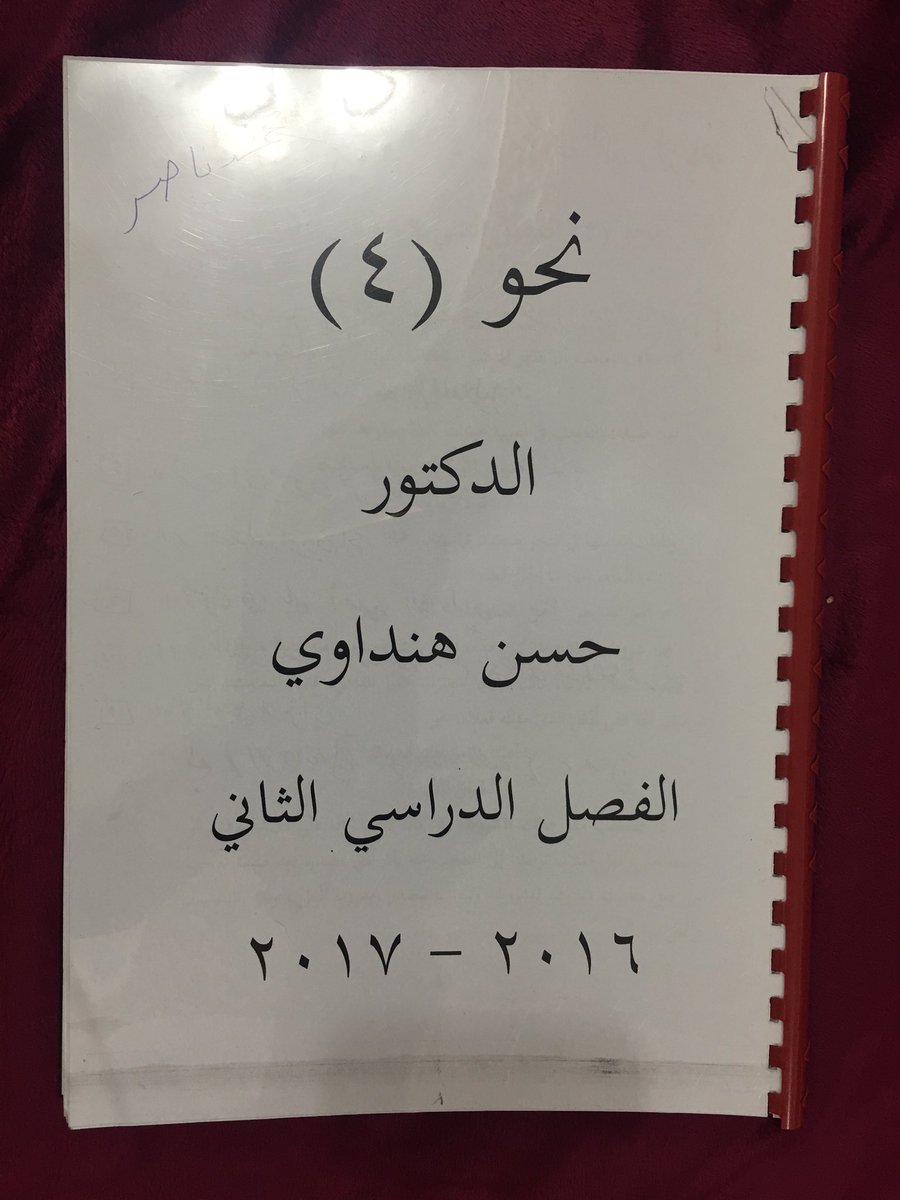 ناصر
نحو (٤)
الدكتور
حسن هنداوي
الفصل الدراسي الثاني
٢٠١٦ - ٢٠١٧